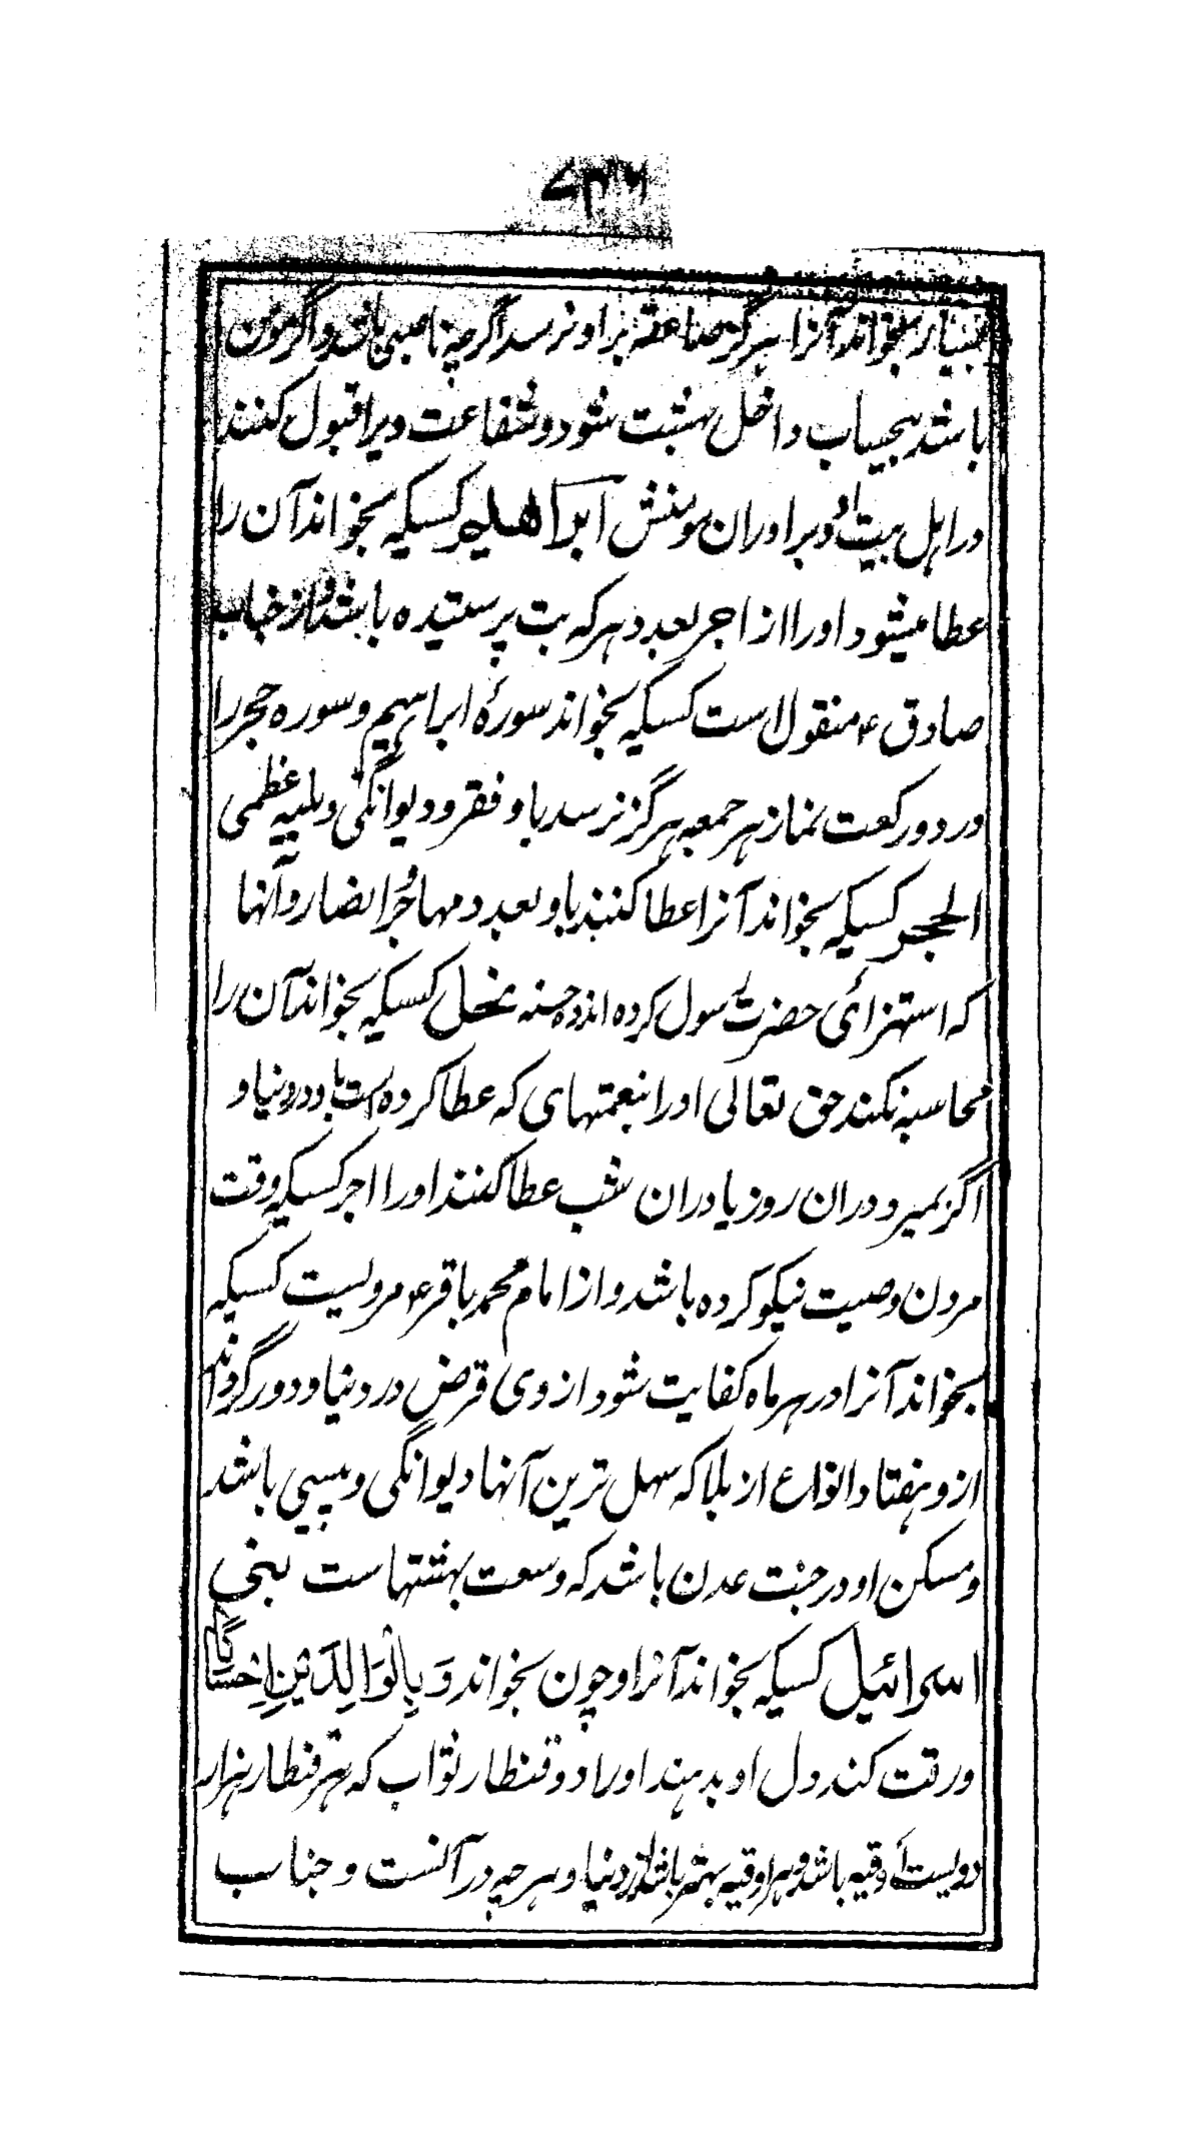 بسیار بخواند آنرا هرگز صاعقه براو نرسد اگرچه ناصبی باشد و اگر مؤمن
باشد بیحساب داخل بهشت شود و شفاعت ویرا قبول کنند
در اهل بیت او و برادران مومنش ابراهیم کسیکه بخواند آن را
عطا میشود اورا از اجر بعدد هرکه بت پرستیده باشد و از جناب
صادق ع منقول است کسیکه بخواند سورهٔ ابراهیم و سوره حجر را
در دو رکعت نماز هر جمعه هرگز نرسد باو فقر و دیوانگی و بلیه عظمی
الحجر کسیکه بخواند آنرا عطا کنند باو بعدد مهاجر و انصار و آنها
که استهزائی حضرت رسول کرده اند ده حسنه نحل کسیکه بخواند آن را
محاسبه نکند حق تعالی اورا بنعمتهای که عطا کرده است باو در دنیا و
اگر بمیرد دران روز یا دران شب عطا کنند اورا اجر کسیکه وقت
مردن وصیت نیکو کرده باشد و از امام محمد باقر ع مرویست کسیکه
بخواند آنرا در هر ماه کفایت شود از وی قرض در دنیا و دور گرداند
ازو هفتاد انواع از بلا که سهل ترین آنها دیوانگی و پیسی باشد
و مسکن او در جنت عدن باشد که وسعت بهشتهاست بنی
اسرائیل کسیکه بخواند آنرا و چون بخواند وَبِالْوَالِدَیْنِ اِحْسَانًا
و رقت کند دل او بدهند اورا دو قنطار ثواب که هر قنطار هزار
دویست اوقیه باشد و هر اوقیه بهتر باشد از دنیا و هرچه در آنست و جناب